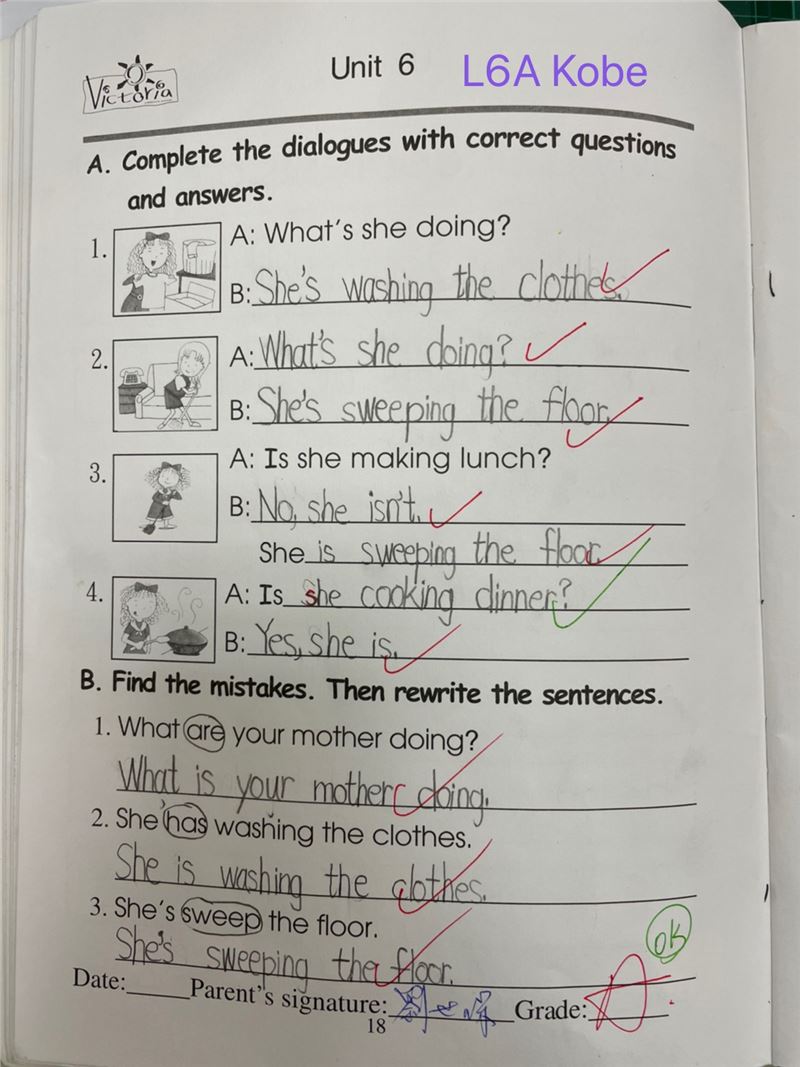 Victoria
Unit 6 L6A Kobe
A. Complete the dialogues with correct questions
and answers.
1. A: What's she doing?
B: She's washing the clothes.
2. A: What's she doing?
B: She's sweeping the floor.
3. A: Is she making lunch?
B: No, she isn't.
She is sweeping the floor.
4. A: Is she cooking dinner?
B: Yes, she is.
B. Find the mistakes. Then rewrite the sentences.
1. What are your mother doing?
What is your mother doing.
2. She has washing the clothes.
She is washing the clothes.
3. She's sweep the floor.
She's sweeping the floor.
OK
Date: Parent's signature: Grade: A
18